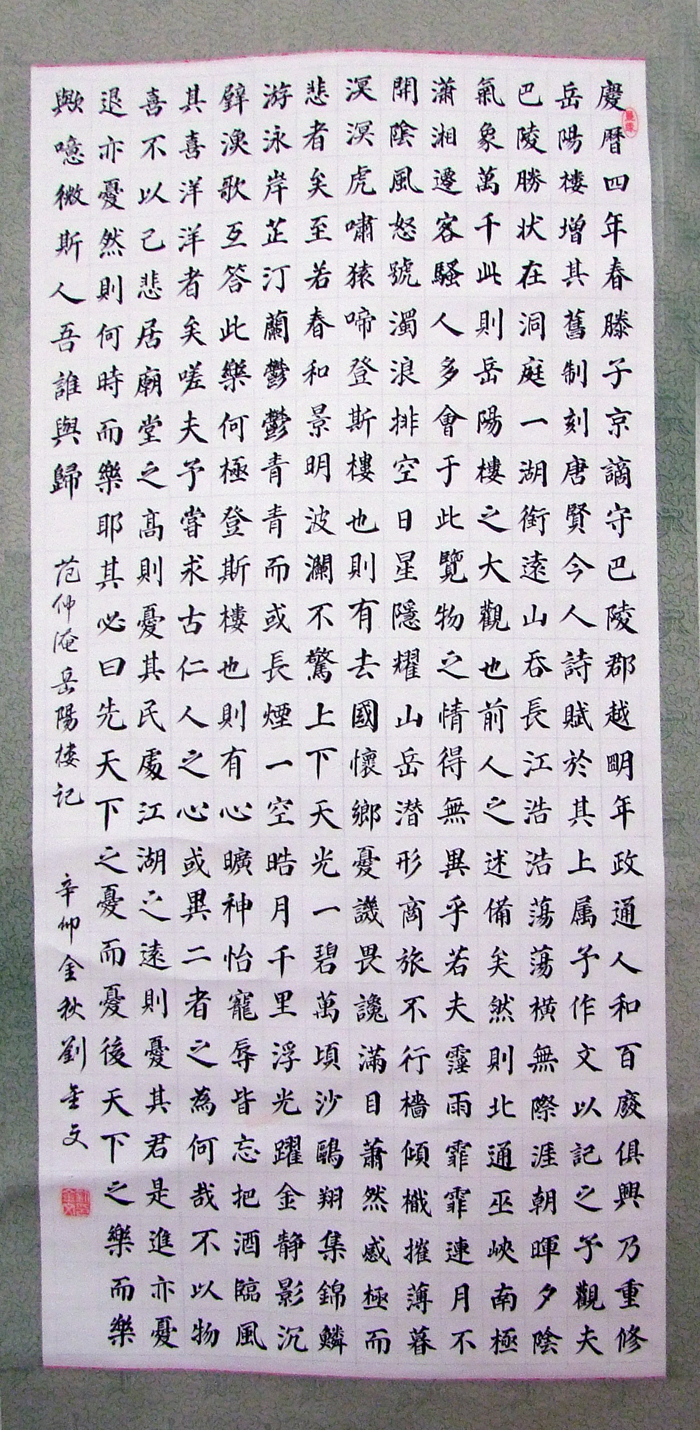 慶暦四年春滕子京謫守巴陵郡越眀年政通人和百廢俱興乃重修
岳陽樓增其舊制刻唐賢今人詩賦於其上属予作文以記之予觀夫
巴陵勝状在洞庭一湖銜遠山吞長江浩浩蕩蕩橫無際涯朝暉夕陰
氣象萬千此則岳陽樓之大觀也前人之述備矣然則北通巫峽南極
瀟湘遷客騷人多會于此覽物之情得無異乎若夫霪雨霏霏連月不
開陰風怒號濁浪排空日星隱耀山岳潜形商旅不行檣傾檝摧薄暮
溟溟虎嘯猿啼登斯樓也則有去國懷鄉憂譏畏讒滿目蕭然感極而
悲者矣至若春和景明波瀾不驚上下天光一碧萬頃沙鷗翔集錦鱗
游泳岸芷汀蘭鬱鬱青青而或長煙一空晧月千里浮光躍金静影沉
璧漁歌互答此樂何極登斯樓也則有心曠神怡寵辱皆忘把酒臨風
其喜洋洋者矣嗟夫予嘗求古仁人之心或異二者之為何哉不以物
喜不以己悲居廟堂之高則憂其民處江湖之遠則憂其君是進亦憂
退亦憂然則何時而樂耶其必曰先天下之憂而憂後天下之樂而樂
歟噫微斯人吾誰與歸 范仲淹岳陽楼记 辛卯金秋劉金文